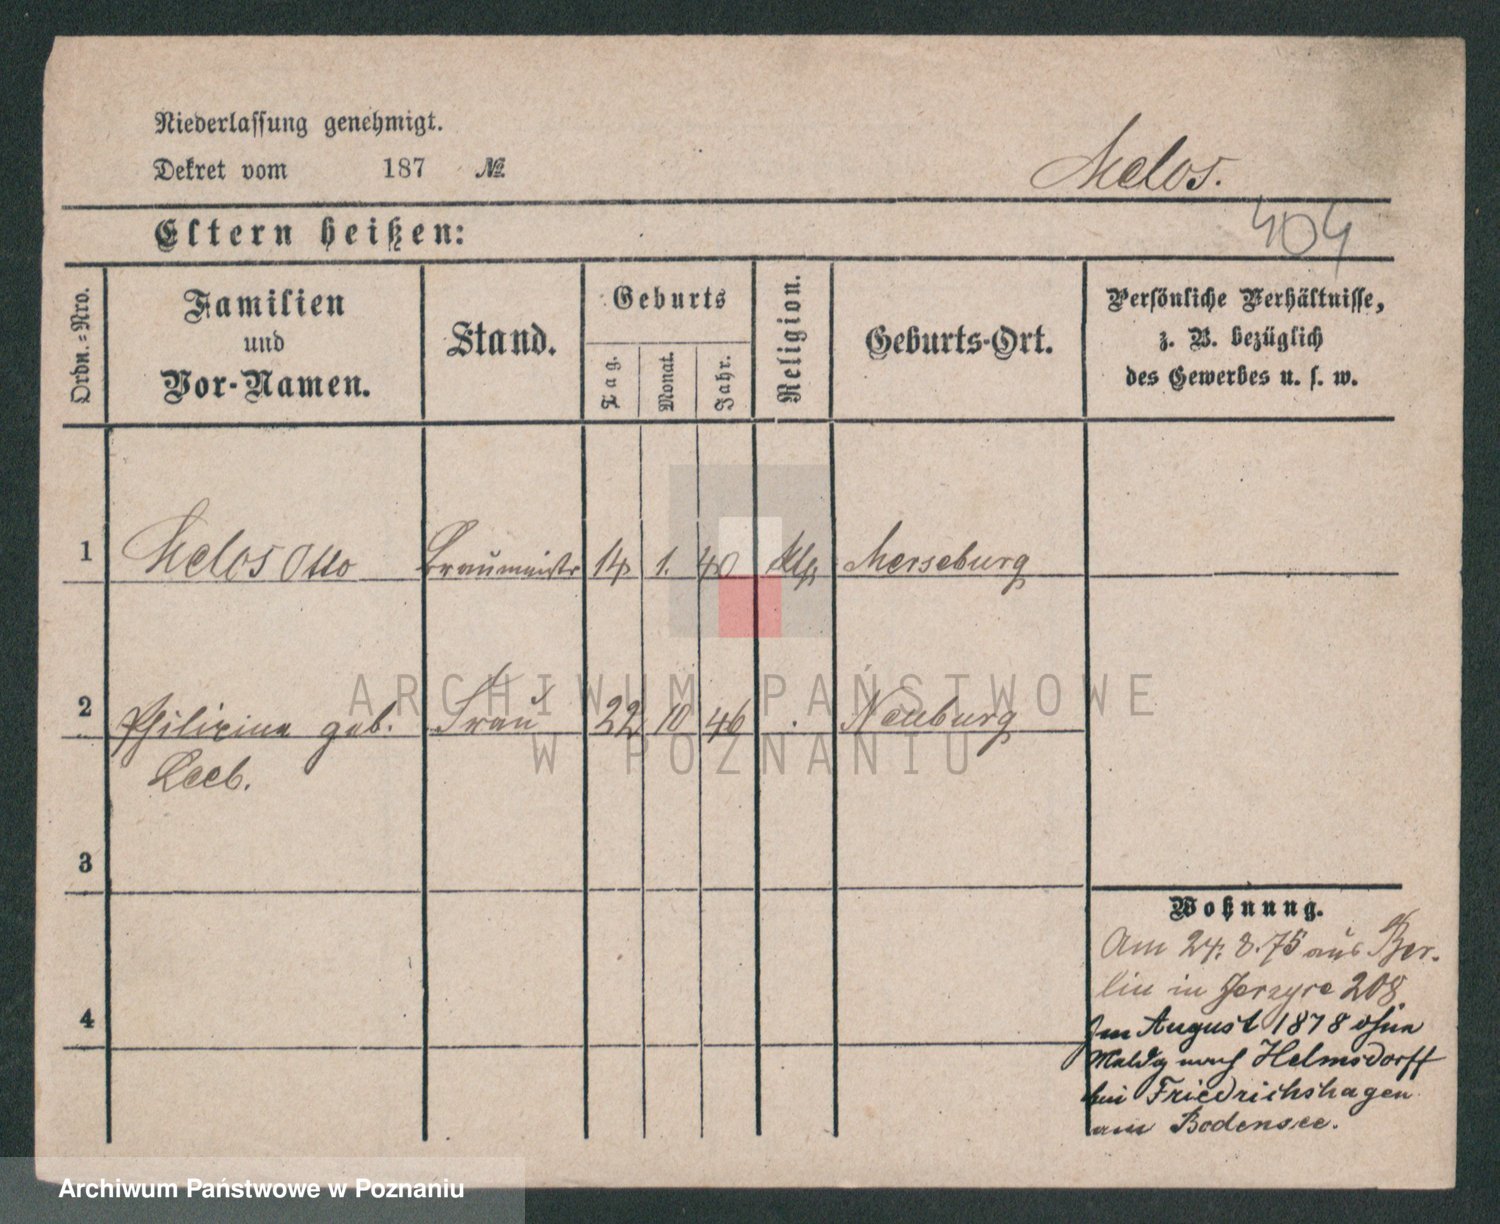 Niederlassung genehmigt.
Dekret vom 187 №
Melos.
404
Eltern heißen:
Ordn.-Nro.
Familien
und
Vor-Namen.
Stand.
Geburts
Tag.
Monat.
Jahr.
Religion.
Geburts-Ort.
Persönliche Verhältnisse,
z. B. bezüglich
des Gewerbes u. s. w.
1 Melos Otto Braumeister 14 1. 40 Merseburg
2 geb. Frau 22 10 46 Neuburg
Leeb.
3
4
Wohnung.
Am 24. 8. 75 aus Ber-
lin in Jerzyce 208
Im August 1878 ohne
Meldg nach Helmsdorff
bei Friedrichshagen
am Bodensee.
ARCHIWUM PAŃSTWOWE
W POZNANIU
Archiwum Państwowe w Poznaniu